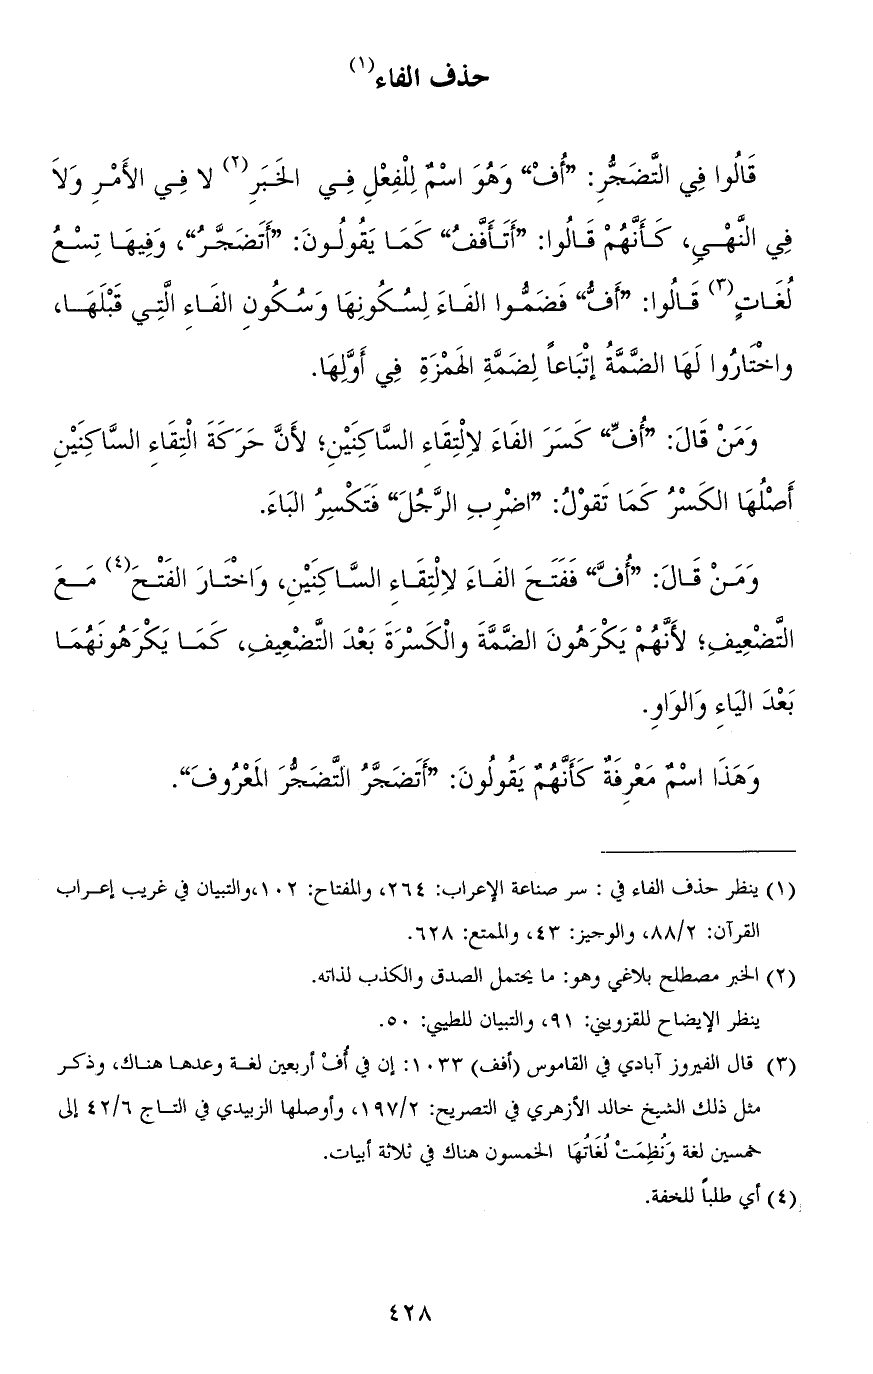 حذف الفاء(١)
قَالُوا فِي التَّضَجُّرِ: ”أُفْ“ وَهُوَ اسْمٌ لِلْفِعْلِ فِي الخَبَرِ(٢) لا فِي الأَمْرِ وَلاَ
فِي النَّهْيِ، كَأَنَّهُمْ قَالُوا: ”أَتَأَفَّفُ“ كَمَا يَقُولُونَ: ”أَتَضَجَّرُ“، وَفِيهَا تِسْعُ
لُغَاتٍ(٣) قَالُوا: ”أُفُّ“ فَضَمُّوا الفَاءَ لِسُكُونِهَا وَسُكُونِ الفَاءِ الَّتِي قَبْلَهَا،
واخْتَارُوا لَهَا الضَّمَّةُ إتْبَاعاً لِضَمَّةِ الهَمْزَةِ فِي أَوَّلِهَا.
وَمَنْ قَالَ: ”أُفِّ“ كَسَرَ الفَاءَ لاِلْتِقَاءِ السَّاكِنَيْنِ؛ لأَنَّ حَرَكَةَ الْتِقَاءِ السَّاكِنَيْنِ
أَصْلُهَا الكَسْرُ كَمَا تَقوْلُ: ”اضْرِبِ الرَّجُلَ“ فَتَكْسِرُ البَاءَ.
وَمَنْ قَالَ: ”أُفَّ“ فَفَتَحَ الفَاءَ لاِلْتِقَاءِ السَّاكِنَيْنِ، وَاخْتَارَ الفَتْحَ(٤) مَعَ
التَّضْعِيفِ؛ لأَنَّهُمْ يَكْرَهُونَ الضَّمَّةَ والْكَسْرَةَ بَعْدَ التَّضْعِيفِ، كَمَا يَكْرَهُونَهُمَا
بَعْدَ اليَاءِ وَالوَاوِ.
وَهَذَا اسْمٌ مَعْرِفَةٌ كَأَنَّهُمْ يَقُولُونَ: ”أَتَضَجَّرُ التَّضَجُّرَ المَعْرُوفَ“.
(١) ينظر حذف الفاء في : سر صناعة الإعراب: ٢٦٤، والمفتاح: ١٠٢،والتبيان في غريب إعراب
القرآن: ٨٨/٢، والوجيز: ٤٣، والممتع: ٦٢٨.
(٢) الخبر مصطلح بلاغي وهو: ما يحتمل الصدق والكذب لذاته.
ينظر الإيضاح للقزويني: ٩١، والتبيان للطيبي: ٥٠.
(٣) قال الفيروز آبادي في القاموس (أفف) ١٠٣٣: إن في أُفْ أربعين لغة وعدها هناك، وذكر
مثل ذلك الشيخ خالد الأزهري في التصريح: ١٩٧/٢، وأوصلها الزبيدي في التاج ٤٢/٦ إلى
خمسين لغة وَنُظِمَتْ لُغَاتُهَا الخمسون هناك في ثلاثة أبيات.
(٤) أي طلباً للخفة.
٤٢٨